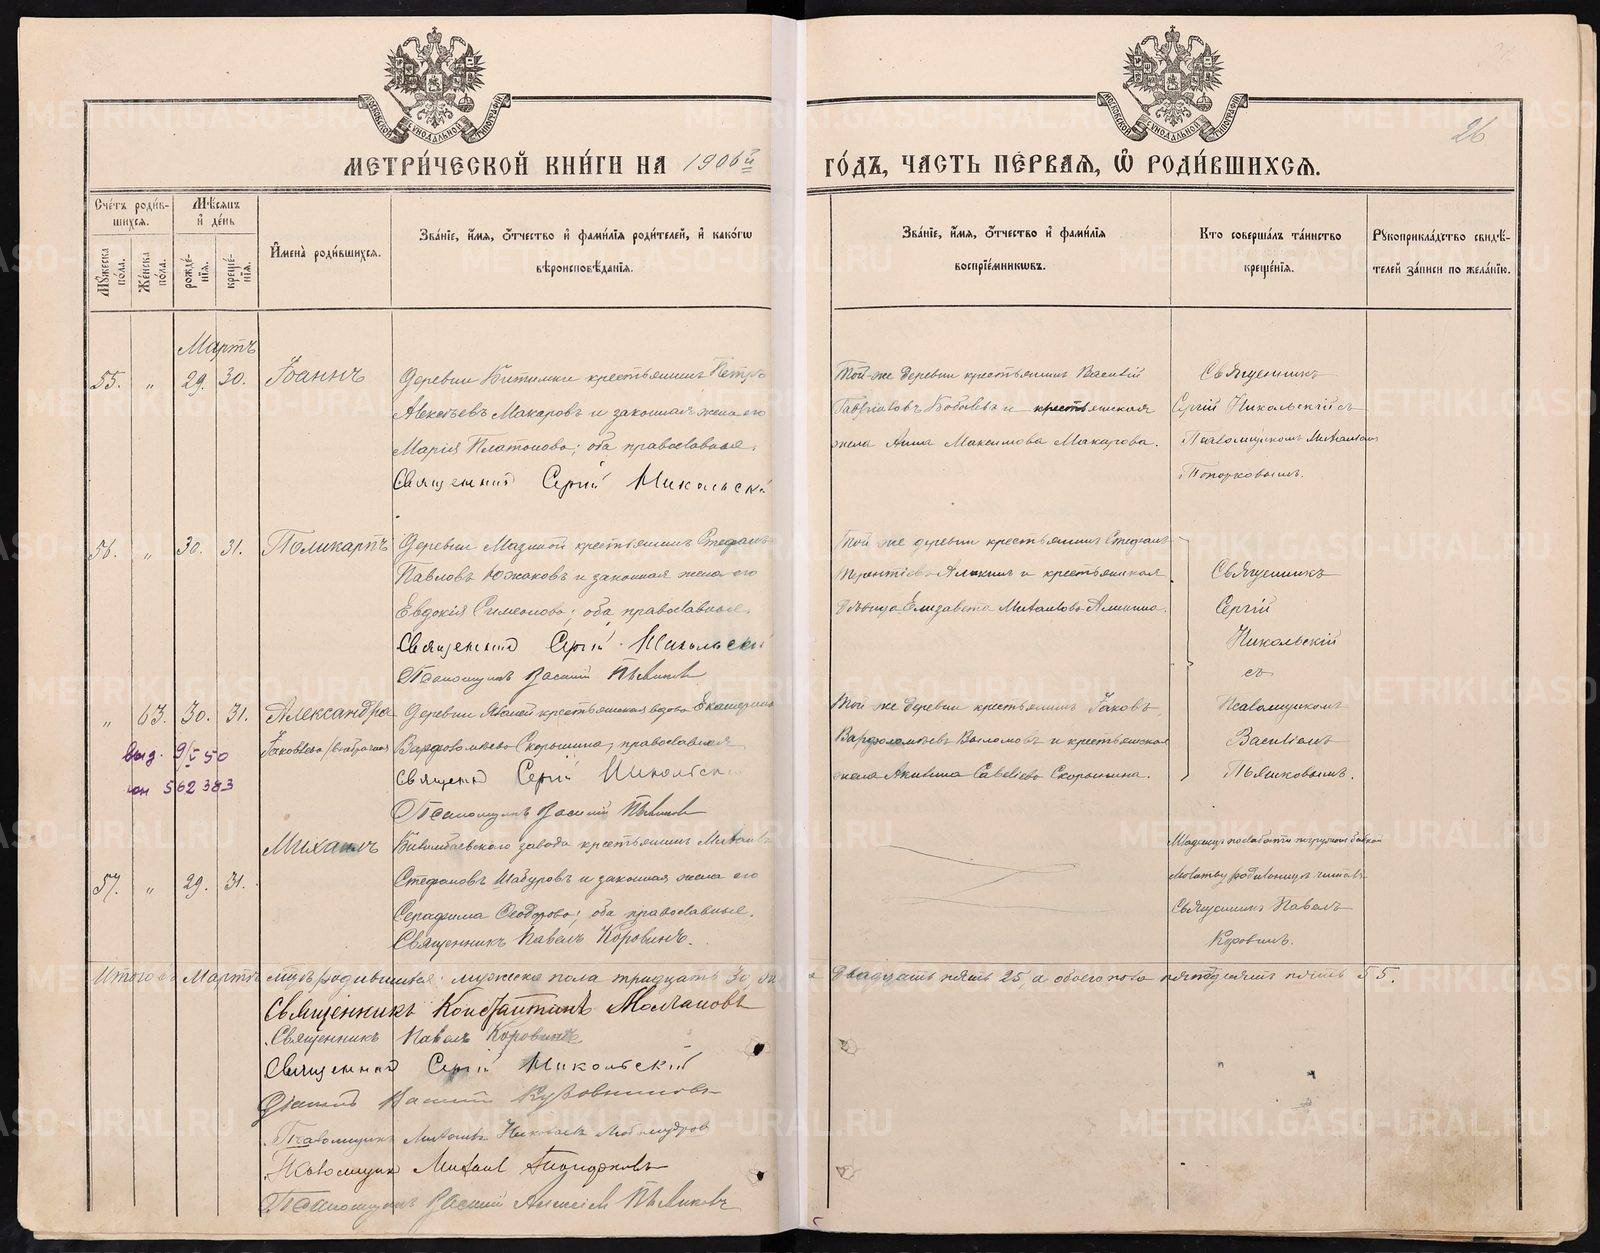 МОСКОВСКОЙ СѴНОДАЛЬНОЙ ТИПОГРАФІИ
МОСКОВСКОЙ СѴНОДАЛЬНОЙ ТИПОГРАФІИ
26
МЕТРИ́ЧЕСКОЙ КНИ́ГИ НА 1906й ГО́ДЪ, ЧАСТЬ ПЕ́РВАЯ, Ѡ РОДИ́ВШИХСЯ.
Сче́тъ роди́в-
шихся.
Му́жеска по́ла.
Же́нска по́ла.
Мѣ́сяцъ и де́нь
рожде́-
нія.
креще́-
нія.
Имена̀ роди́вшихся.
Зва́ніе, и́мя, о́тчество и фами́лія роди́телей, и како́гѡ
вѣроисповѣ́данія.
Зва́ніе, и́мя, о́тчество и фами́лія
воспріе́мниковъ.
Кто соверша́лъ та́инство
креще́нія.
Рукоприкла́дство свидѣ́-
телей за́писи по жела́нію.
Мартъ
55. „ 29. 30. Іоаннъ
Деревни Битимки крестьянинъ Петръ
Алексѣевъ Макаровъ и законная жена его
Марія Платонова; оба православные.
Священникъ Сергій Никольскій
Той-же деревни крестьянинъ Василій
и крестьянская
жена Анна Максимова Макарова.
Священникъ
Сергій Никольскій съ
Псаломщикомъ Михаиломъ
Топорковымъ.
56. „ 30. 31. Поликарпъ
Деревни крестьянинъ Стефанъ
Павловъ Южаковъ и законная жена его
Евдокія Симеонова; оба православные.
Священникъ Сергій Никольскій
Псаломщикъ Василій Пьянковъ
Той же деревни крестьянинъ Стефанъ
Терентіевъ и крестьянская
дѣвица Елизавета Михаилова
Священникъ
Сергій
Никольскій
съ
Псаломщикомъ
Василіемъ
Пьянковымъ.
„ 63. 30. 31. Александра
Яковлева (внѣбрачная)
Деревни крестьянская вдова Екатерина
Варфоломѣева Скорынина, православная
Священникъ Сергій Никольскій
Псаломщикъ Василій Пьянковъ
Той же деревни крестьянинъ Іаковъ
Варфоломѣевъ и крестьянская
жена Акилина Савелієва Скорынина.
выд. 9/V 50
562383
57. „ 29. 31. Михаилъ
Билимбаевскаго завода крестьянинъ Михаилъ
Стефановъ Шабуровъ и законная жена его
Серафима Ѳеодорова; оба православные.
Священникъ Павелъ Коровинъ.
Молитву родильницѣ читалъ
Священникъ Павелъ
Коровинъ.
Итого въ Мартѣ м-цѣ родившихся: мужска пола тридцать 30, двадцать пять 25, а обоего пола пятьдесятъ пять 55.
Священникъ Константинъ Молчановъ
Священникъ Павелъ Коровинъ
Священникъ Сергій Никольскій
Діаконъ Василій
Псаломщикъ Николаевъ Любомудров
Псаломщик Михаил Топорковъ
Псаломщикъ Василій Алексѣев Пьянковъ
METRIKI.GASO-URAL.RU